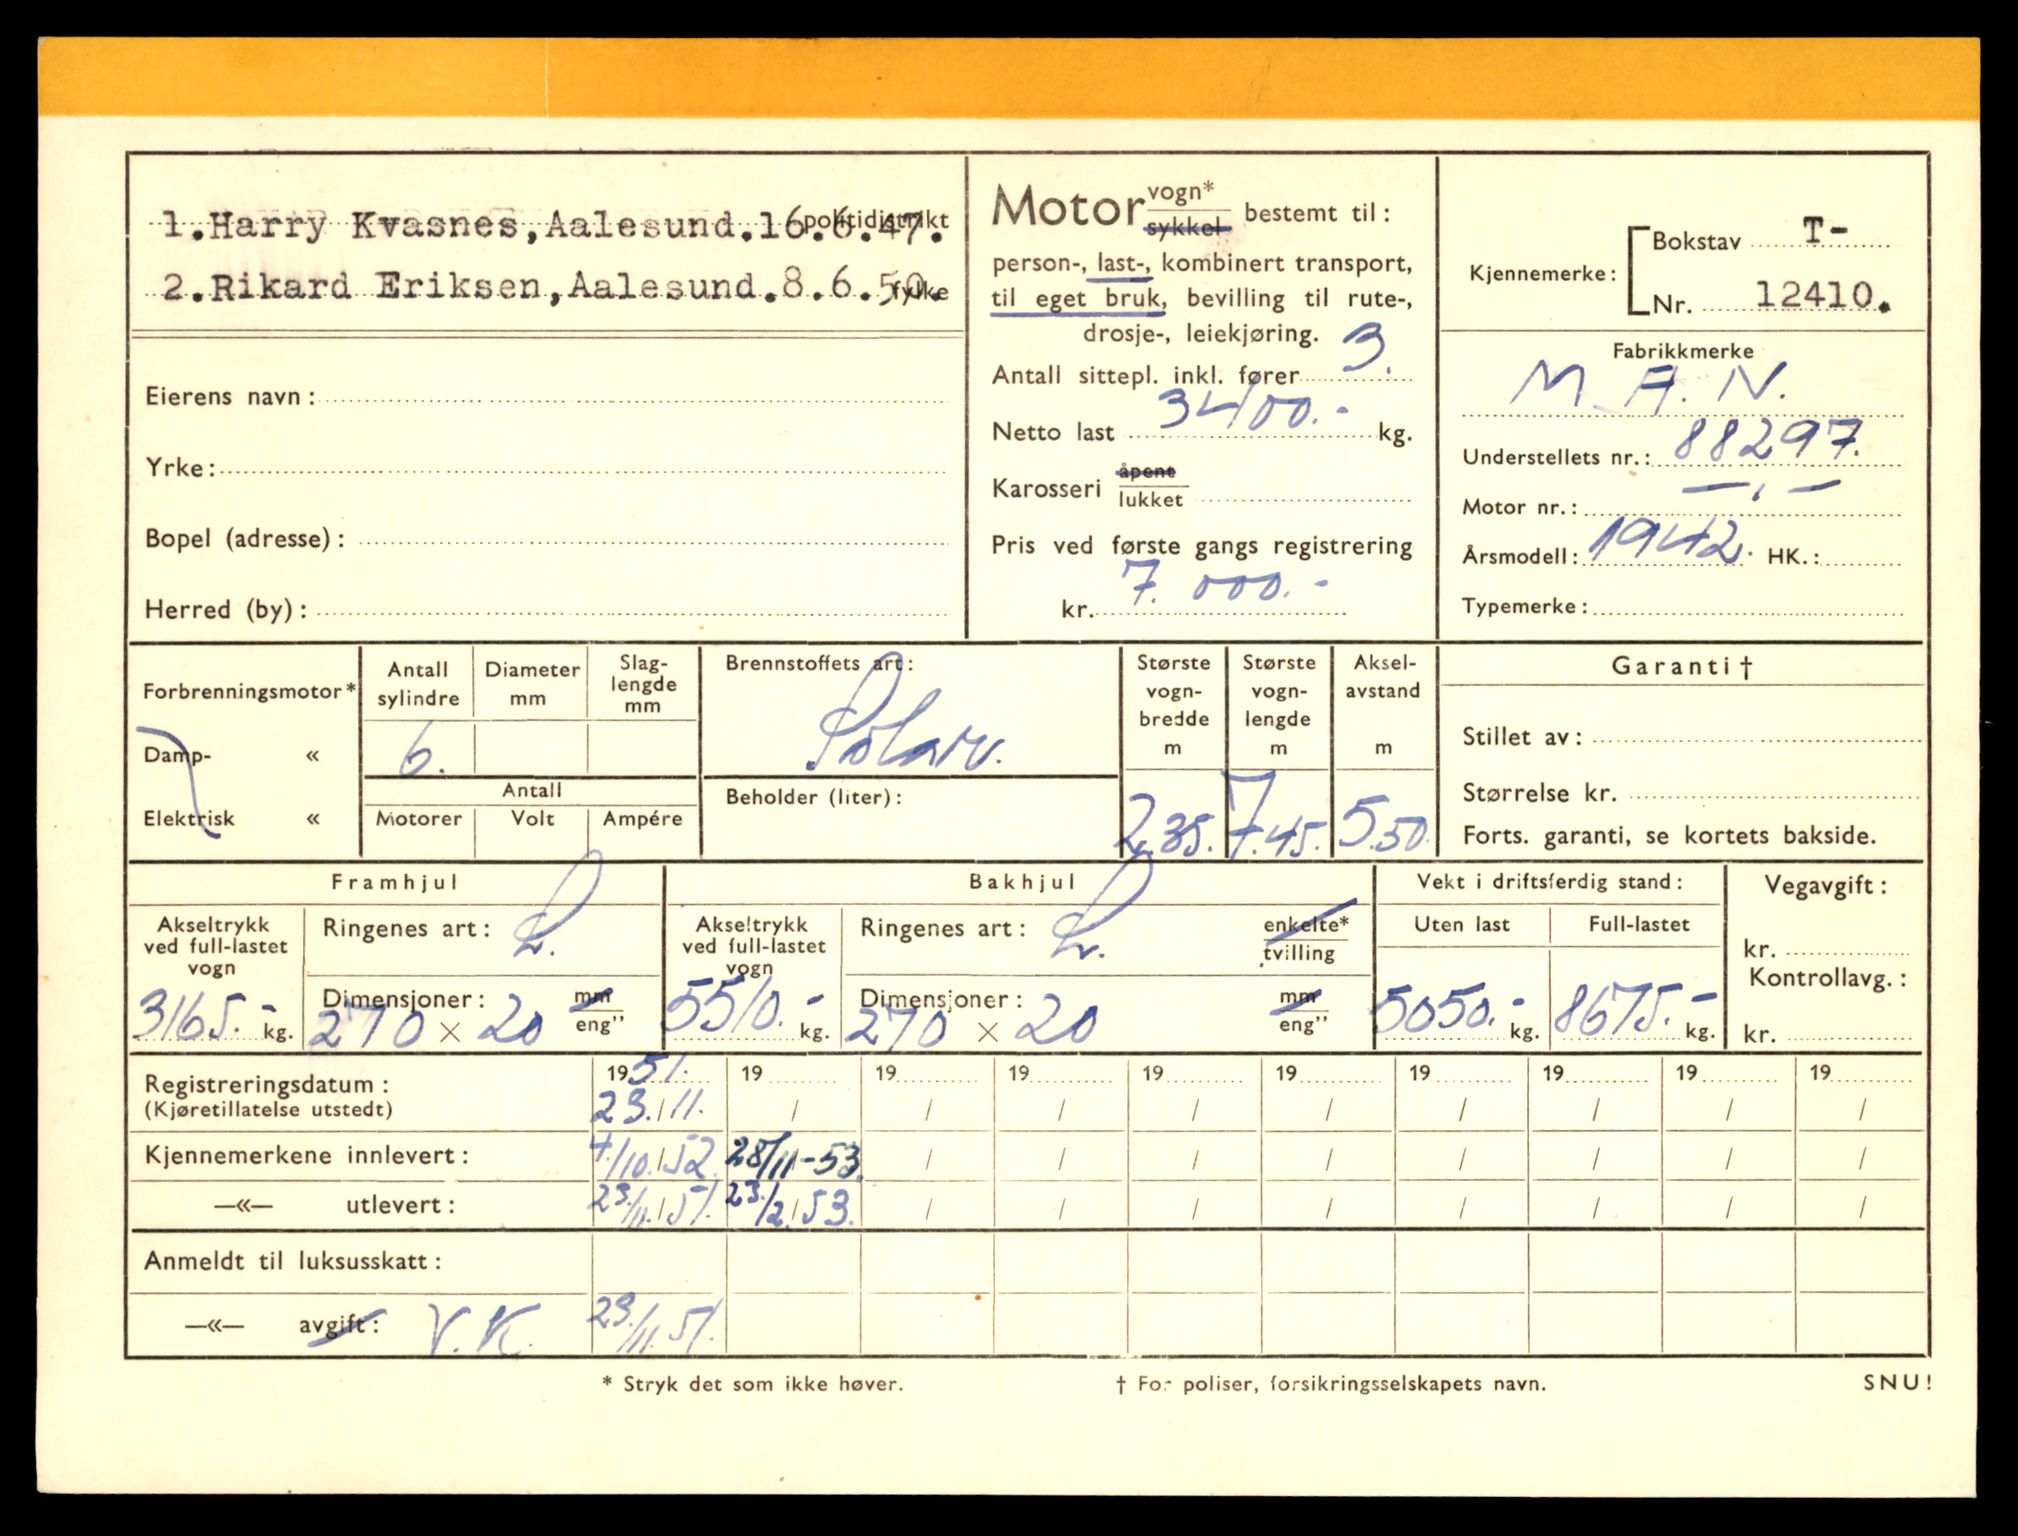 1.Harry Kvasnes,Aalesund.16.6.47. politidistrikt
2.Rikard Eriksen,Aalesund.8.6.50. fylke
Eierens navn:
Yrke:
Bopel (adresse):
Herred (by):
Motor vogn* sykkel bestemt til:
person-, last-, kombinert transport,
til eget bruk, bevilling til rute-,
drosje-, leiekjøring.
Antall sittepl. inkl. fører 3.
Netto last 3400.- kg.
Karosseri åpent lukket
Pris ved første gangs registrering
kr. 7.000.-
Kjennemerke:
Bokstav T-
Nr. 12410.
Fabrikkmerke
M.A.N.
Understellets nr.: 88297.
Motor nr.: — , —
Årsmodell: 1942. HK.:
Typemerke:
Forbrenningsmotor*
Damp- «
Elektrisk «
Antall sylindre
Diameter mm
Slag-lengde mm
6.
Antall
Motorer Volt Ampére
Brennstoffets art:
Solar.
Beholder (liter):
Største vogn-bredde m
2.35.
Største vogn-lengde m
7.45.
Aksel-avstand m
5.50.
Garanti †
Stillet av:
Størrelse kr.
Forts. garanti, se kortets bakside.
Framhjul
Akseltrykk ved full-lastet vogn
3165.- kg.
Ringenes art: L.
Dimensjoner: mm eng”
270 × 20
Bakhjul
Akseltrykk ved full-lastet vogn
5510.- kg.
Ringenes art: L. enkelte* tvilling
Dimensjoner: mm eng”
270 × 20
Vekt i driftsferdig stand:
Uten last Full-lastet
5050.- kg. 8675.- kg.
Vegavgift:
kr.
Kontrollavg.:
kr.
Registreringsdatum: 1951. 19 19 19 19 19 19 19 19 19
(Kjøretillatelse utstedt) 23./11. / / / / / / / / /
Kjennemerkene innlevert: 4./10./52. 28/11-53. / / / / / / / /
—«— utlevert: 23./11./51. 23./2./53. / / / / / / / /
Anmeldt til luksusskatt:
—«— avgift: V.K. 23./11.51.
* Stryk det som ikke høver. † For poliser, forsikringsselskapets navn. SNU!